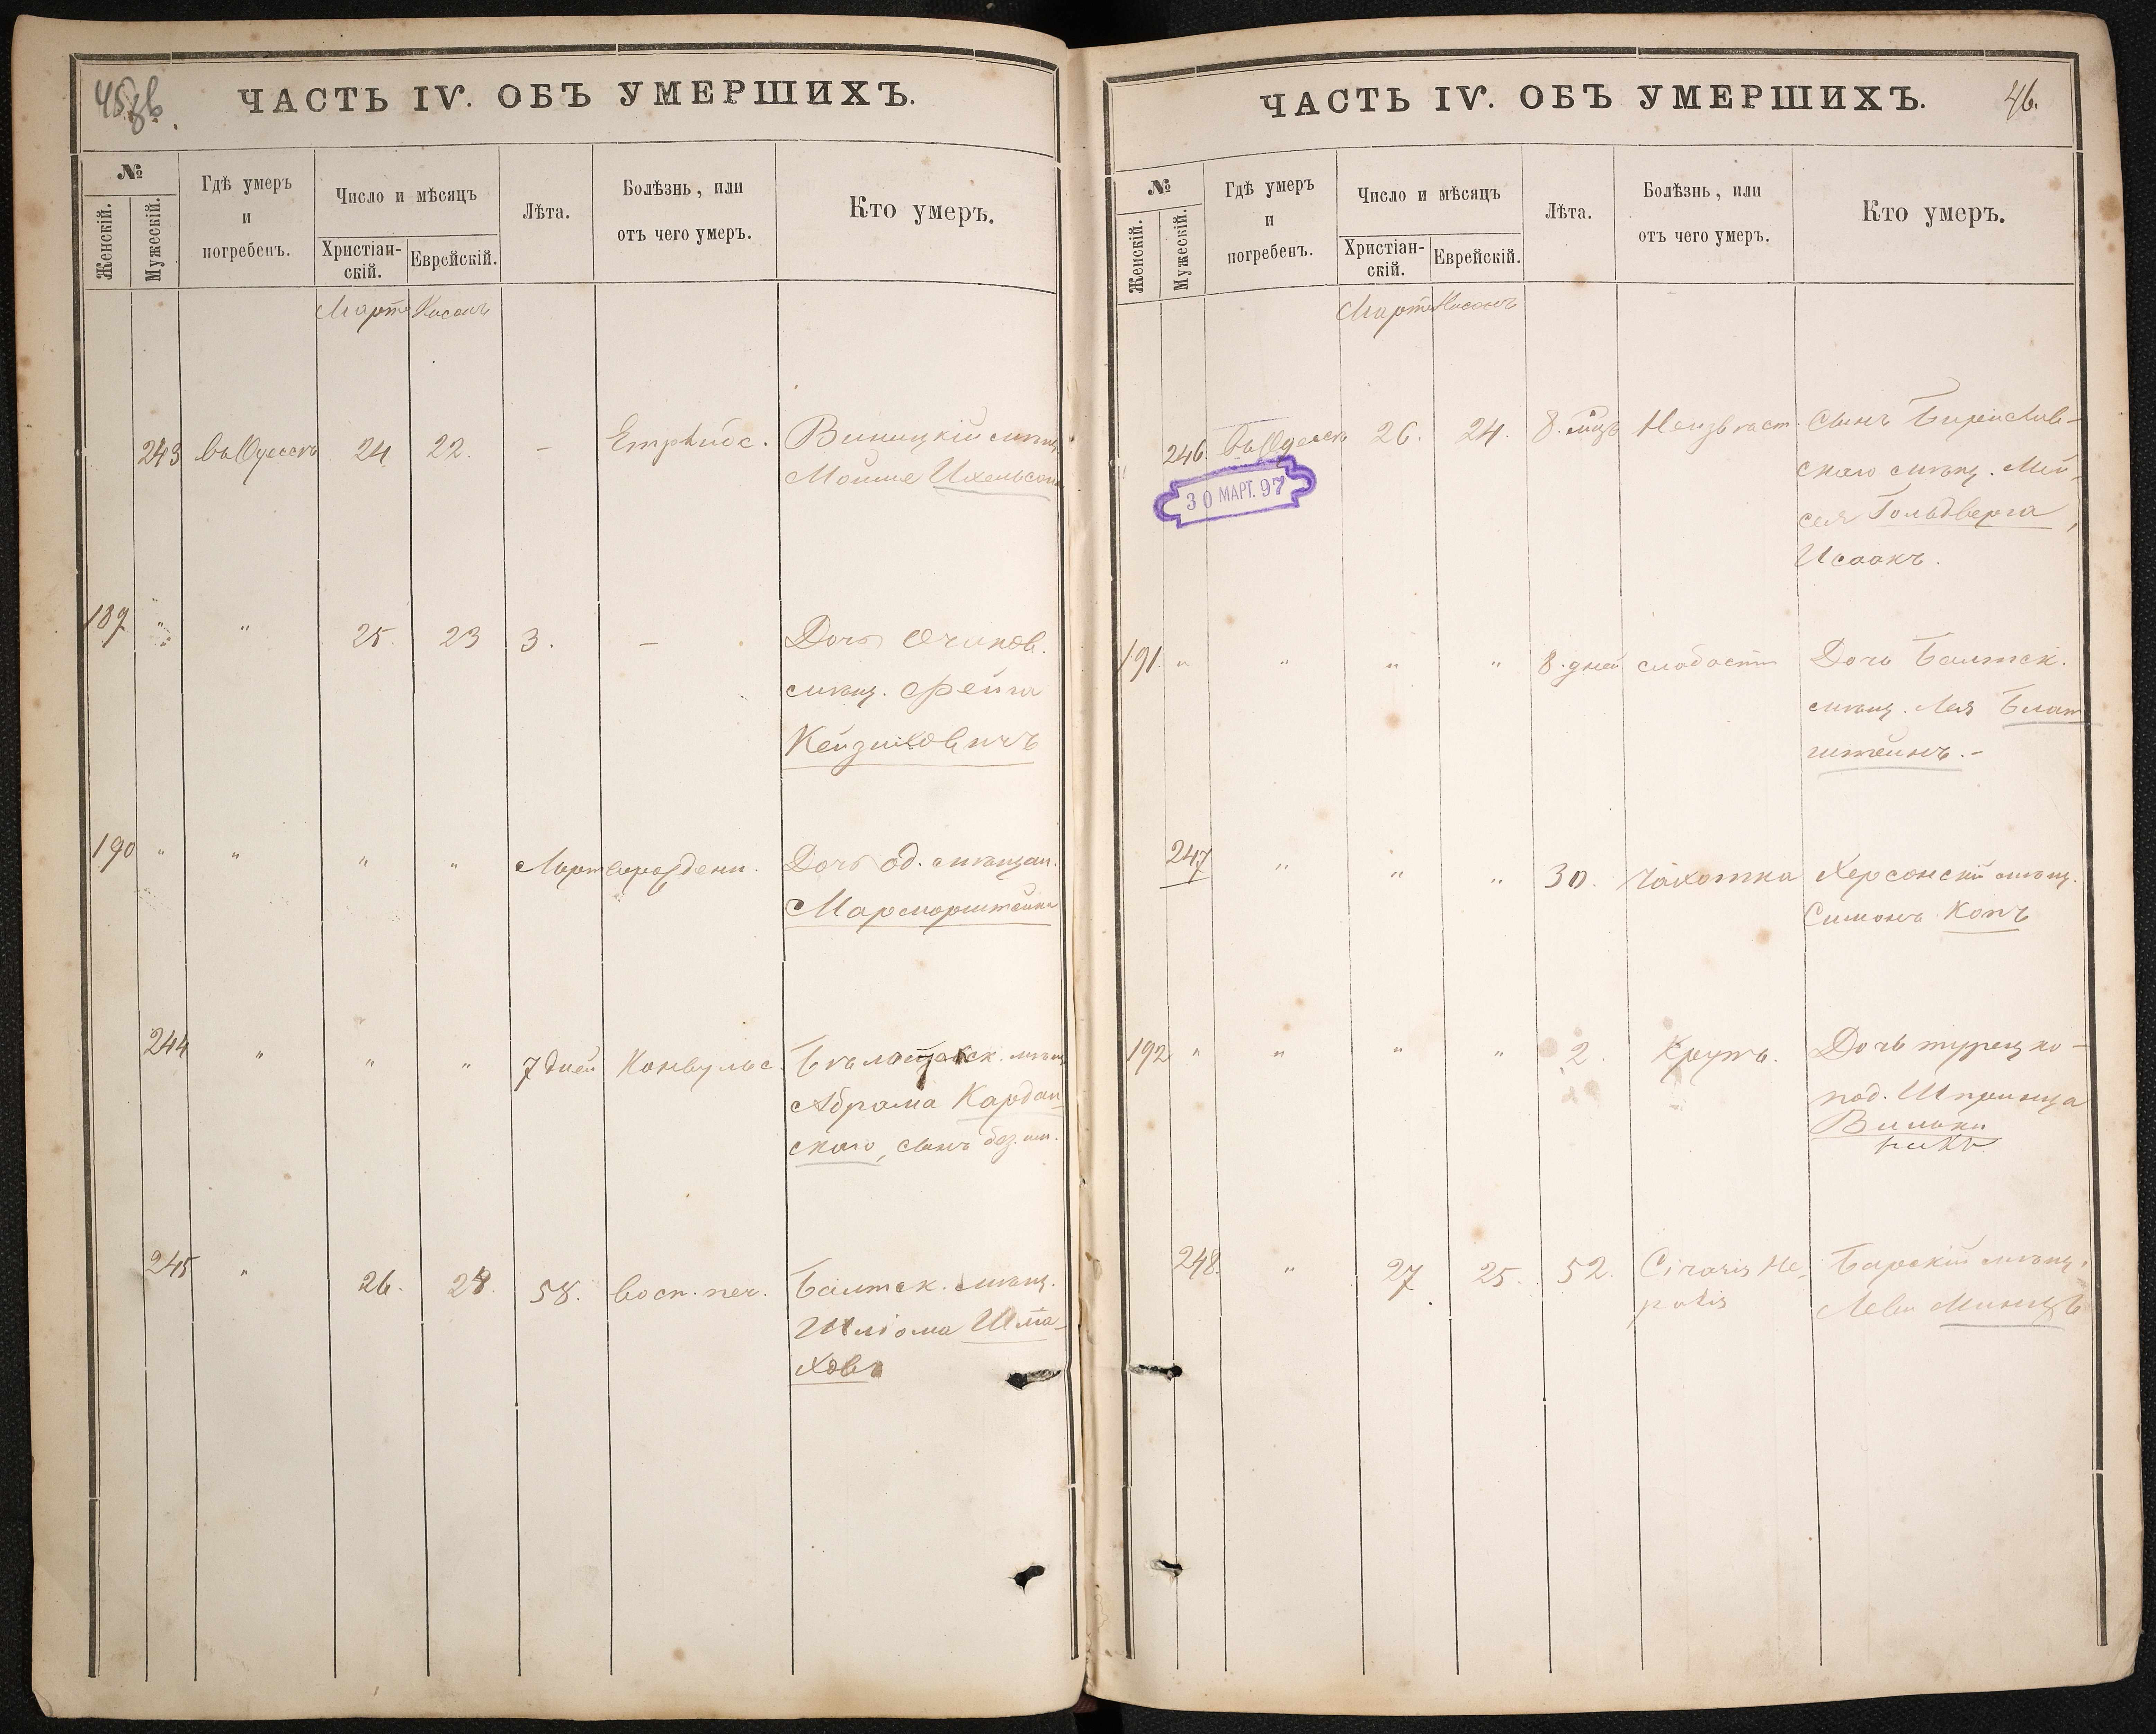 45 об.
ЧАСТЬ IV. ОБЪ УМЕРШИХЪ.
№
Женскій.
Мужескій.
Гдѣ умеръ
и
погребенъ.
Число и мѣсяцъ
Христіан-
скій.
Еврейскій.
Лѣта.
Болѣзнь, или
отъ чего умеръ.
Кто умеръ.
Мартъ Нисонъ
243 въ Одессѣ 24 22. - Виницкій мѣщ.
Мойше Ихельсонъ
189 " " 25. 23 3. - Дочь Очаков.
мѣщ. Фейга
190 " " " " Мертворожденн. Дочь од. мѣщан.
Марморштейна
244 " " " 7 дней Конвульс.
Абрама Кардан-
скаго, сынъ без. им.
245 " 26. 24. 58. восп. леч. Балтск. мѣщ.
Шліома Шма-
ховъ
ЧАСТЬ IV. ОБЪ УМЕРШИХЪ.
46.
№
Женскій.
Мужескій.
Гдѣ умеръ
и
погребенъ.
Число и мѣсяцъ
Христіан-
скій.
Еврейскій.
Лѣта.
Болѣзнь, или
отъ чего умеръ.
Кто умеръ.
Мартъ Нисонъ
246. въ Одессѣ 26. 24. 8. мѣц. Неизвѣст. Сынъ Берислав-
скаго мѣщ. Мой-
сея Гольдберга,
Исаакъ.
30 МАРТ. 97
191. " " " " 8. дней слабости Дочь Балтск.
мѣщ. Лея Блат
штейнъ. -
247 " " " 30. Чахотка Херсонскій мѣщ.
Симонъ Копъ
192 " " " " 2. Крупъ. Дочь турецко-
под. Шпринца
248. " 27 25. 52. Cirosis He-
patis
Барскій мѣщ.
Леви Минцъ